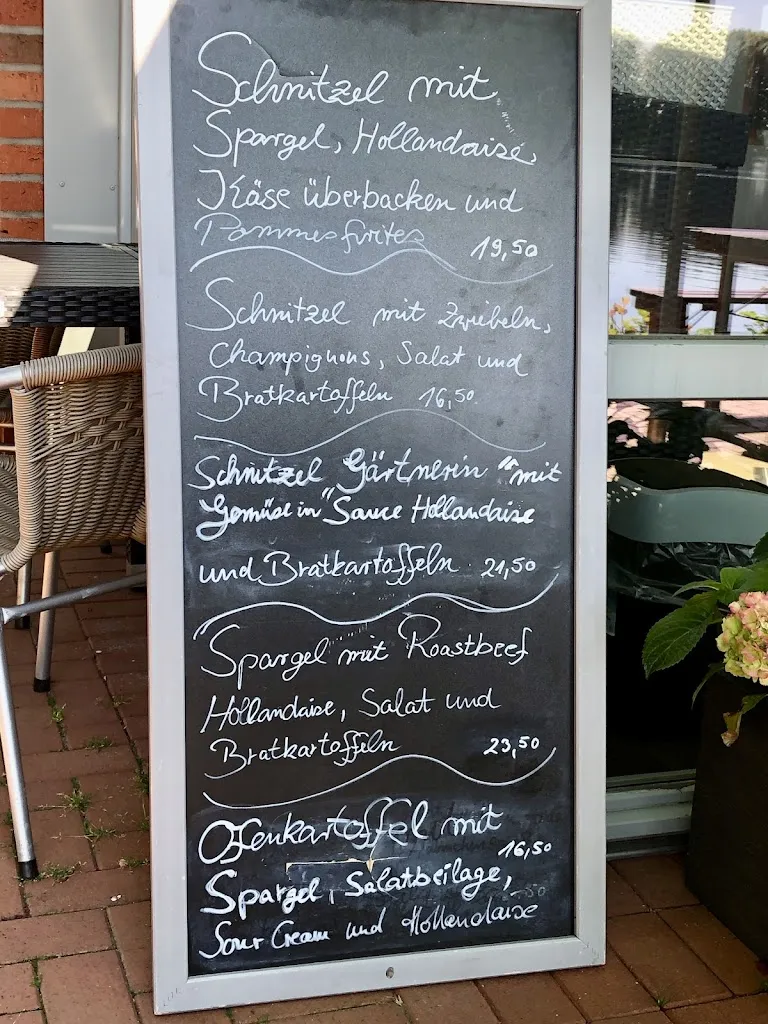 Schnitzel mit
Spargel, Hollandaise,
Käse überbacken und
Pommes frites 19,50
Schnitzel mit Zwiebeln,
Champignons, Salat und
Bratkartoffeln 16,50.
Schnitzel Gärtnerin "mit
Gemüse in" Sauce Hollandaise
und Bratkartoffeln 21,50
Spargel mit Roastbeef
Hollandaise, Salat und
Bratkartoffeln 23,50
Ofenkartoffel mit
16,50
Spargel, Salatbeilage,
Sour Cream und Hollandaise